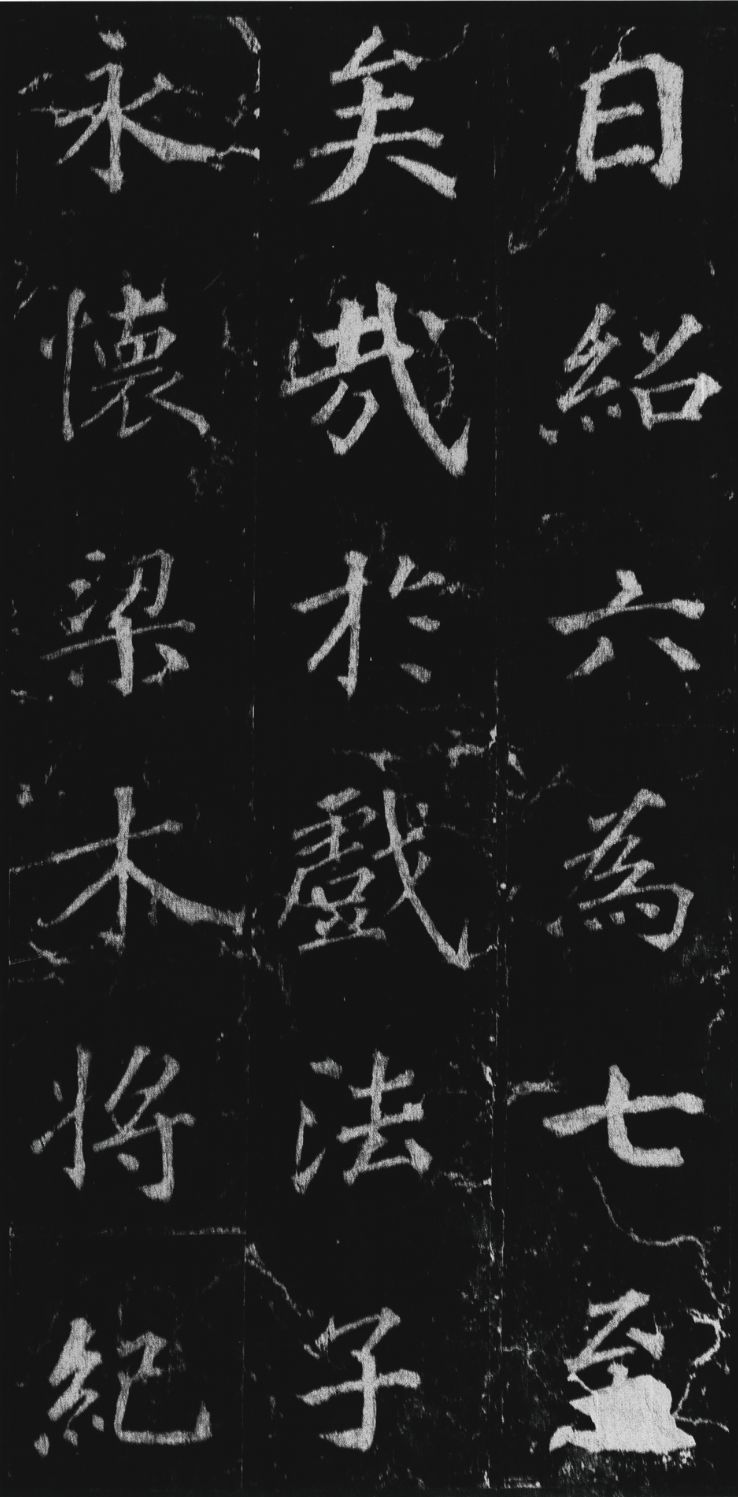 自紹六為七至
矣哉於戲法子
永懷梁木將紀